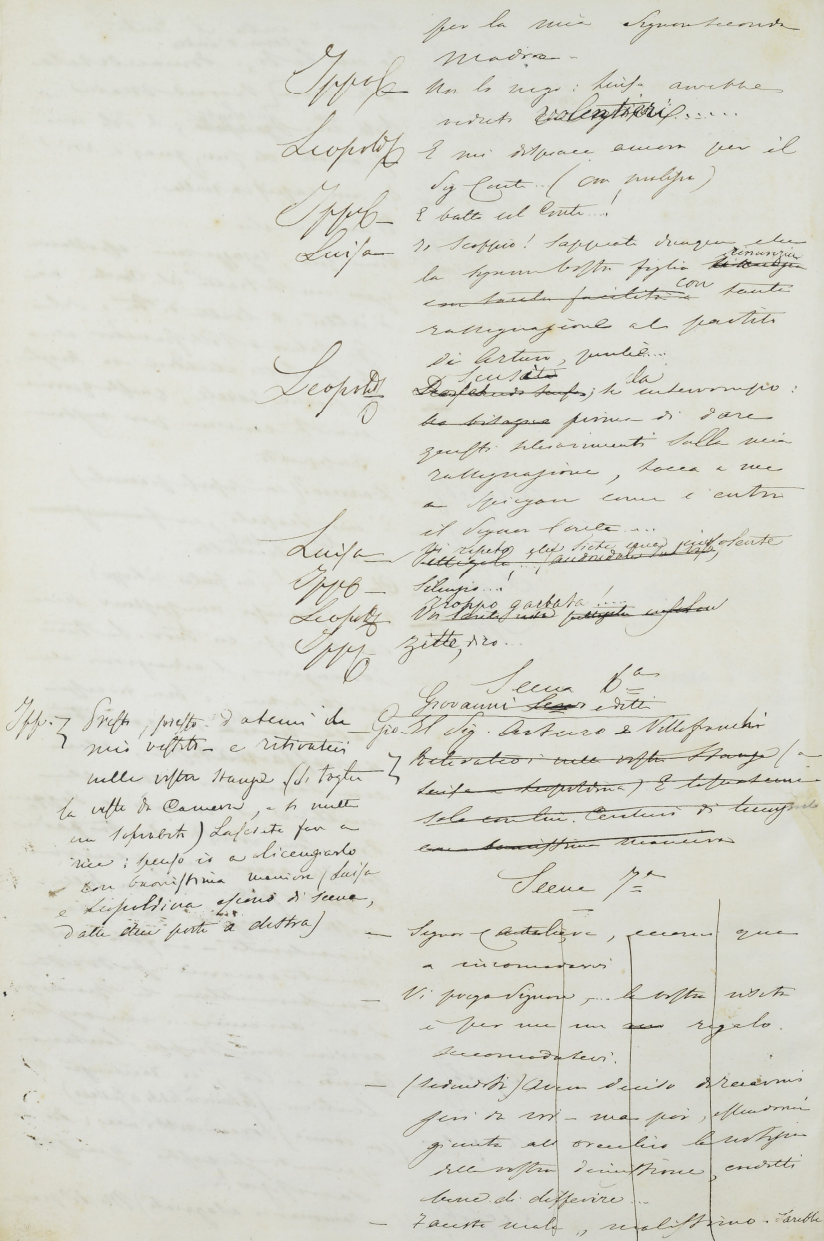 per la mia Signora seconda
madre –
Ippol – Non lo nego: Luisa avrebbe
veduto volentieri.....
Leopold – E mi dispiace ancora per il
Sig Conte.. (con malizia)
Ippol – E batta col Conte..!
Luisa – Io scoppio! Sappiate dunque che
la Signora vostra figlia rinunzia
con tanta facilità con tanta
rassegnazione al partito
di Arturo, perchè...
Leopold – Scusate; la interrompo:
ha bisogna prima di dare
questi schiarimenti sulla mia
rassegnazione, tocca a me
a spiegare come c'entra
il Signor Conte...
Luisa – Vi ripeto che siete una insolente
Ippol – Silenzio..!
Leopold – Troppo garbata!....
Ippol – Zitte, dico...
Scena 6a
Giovanni e detti
Gio – Il Sig. Arturo e Villafranchi
Ipp. } Presto, presto datemi il
mio vestito – e ritiratevi
nelle vostre stanze (si toglie
la veste da Camera, e si mette
un soprabito) Lasciate fare a
me: penso io a licenziarlo
con buonissima maniera (Luisa
e Leopoldina escono di scena,
dalle due porte a destra)
Ritiratevi nelle vostre Stanze (a
Luisa e Leopoldina) E lasciatemi
solo con lui. Cercherò di
con buonissima maniera
Scena 7a
– Signor, eccomi qua
a incomodarvi
– Vi prego Signore,... la vostra visita
è per me un regalo.
accomodatevi.
– (sedendosi) Avea deciso di recarmi
jeri da voi – ma poi, essendomi
giunta all'orecchio la notizia
della vostra dimissione, credetti
bene di differire...
– Faceste male, malissimo. Sarebbe